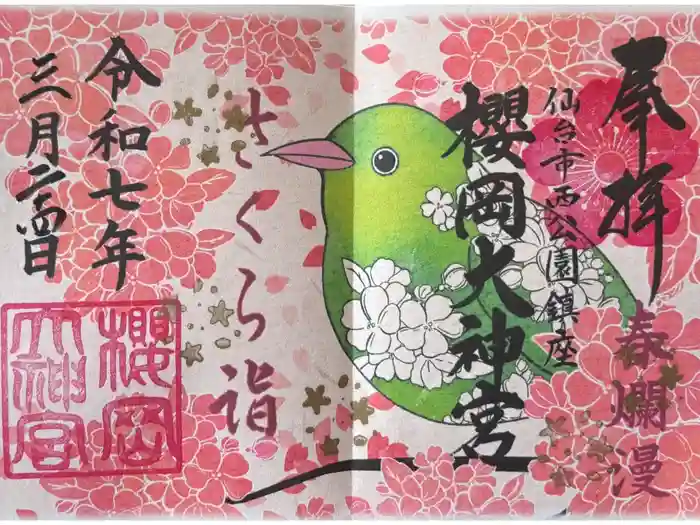 奉拝
春爛漫
仙台市西公園鎮座
櫻岡大神宮
さくら詣
令和七年
三月二曽日
櫻岡
大神宮